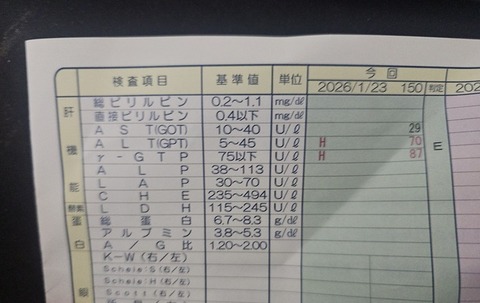 今回
検査項目 基準値 単位 2026/1/23 150 判定 202
肝機能 総ビリルビン 0.2~1.1 mg/dℓ
直接ビリルビン 0.4以下 mg/dℓ
AST(GOT) 10~40 U/ℓ 29
ALT(GPT) 5~45 U/ℓ H 70 E
γ-GTP 75以下 U/ℓ H 87
ALP 38~113 U/ℓ
LAP 30~70 U/ℓ
CHE 235~494 U/ℓ
酵素 LDH 115~245 U/ℓ
蛋白 総蛋白 6.7~8.3 g/dℓ
アルブミン 3.8~5.3 g/dℓ
A/G比 1.20~2.00
K-W(右/左)
眼 Scheie:S(右/左)
Scheie:H(右/左)
Scott(右/左)